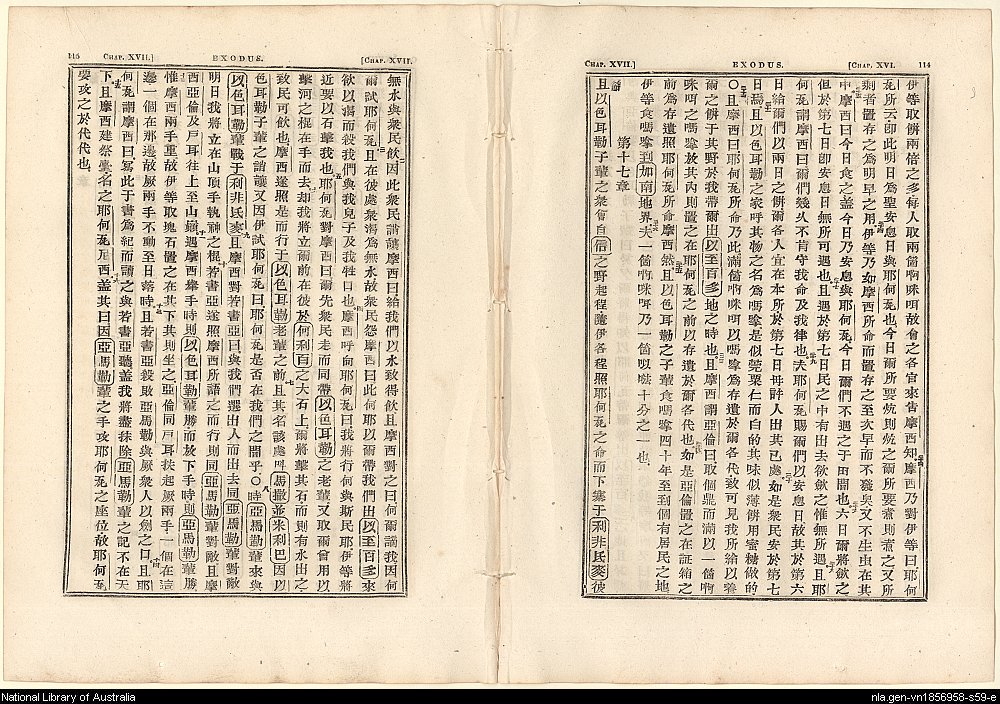 CHAP. XVII.] EXODUS. [CHAP. XVI. 114
伊等取餅兩倍之多每人取兩𠾖啊咪咡故會之各官來告摩西知摩西乃對伊等曰耶何
所云卽此明日爲聖安息日與耶何也今日爾所要炕則炕之爾所要煮則煮之又所
剩者置存之爲明早之用伊等乃如摩西所命而置存之至次早而不發臭又不生虫在其
中摩西曰今日食之蓋今日乃安息與耶何今日爾們不遇之于田間也六日爾將斂之
但於第七日卽安息日無所可遇也且遇於第七日民之中有出去欲斂之惟無所遇且耶
何謂摩西曰爾們幾久不肯守我命及我律也夫耶何賜爾們以安息日故其於第六
日給爾們以兩日之餅爾各人宜在本所於第七日毋許人出其已處如是衆民安於第七
日焉且以色耳勒之家呼其物之名爲嗎嗱是似莞粟仁而白的其味似薄餅用蜜糖做的
○且摩西曰耶何所命乃此滿𠾖啊咪咡以嗎嗱爲存遺於爾各代致可見我所給以養
爾之餅于其野於我帶爾出以至百多地之時也且摩西謂亞倫曰取個鼎而滿以一𠾖啊
咪咡之嗎嗱於其內則置之在耶何之前以存遺於爾各代也如是亞倫置之在証箱之
前爲存遺照耶何所命摩西然且以色耳勒之子輩食嗎嗱四十年至到個有居民之地
伊等食嗎嗱到加南地界夫一𠾖啊咪咡乃一𠾖十分之一也
第十七章
且以色耳勒子輩之衆會自信之野起程隨伊各程照耶何之命而下寨于利非氐麥彼
115 CHAP. XVII.] EXODUS. [CHAP. XVII.
無水與衆民飮因此衆民誚讓摩西曰給我們以水致得飮且摩西對之曰何爾誚我因何
爾試耶何且在彼處衆渴爲無水故衆民怨摩西曰此何耶以爾帶我們出以至百多來
欲以渴而殺我們與我兒子及我牲口也摩西呼向耶何曰我將行何與斯民耶伊等將
近要以石擊我也耶何對摩西曰爾先衆民走而同帶以色耳勒之老輩又取爾曾用以
擊河之棍在手而去却我將立爾前在彼於何利百之大石上爾將擊其石而則有水出之
致民可飮也摩西遂照是而行于以色耳勒老輩之前且其名該處呌馬撒並米利巴因以
色耳勒子輩之誚讓又因伊試耶何曰耶何是否在我們之間乎○時亞馬勒輩來與
以色耳勒輩戰于利非氐麥且摩西對若書亞曰與我們選出人而出去同亞馬勒輩對敵
明日我將立在山頂手執神之棍若書亞遂照摩西所語之而行則同亞馬勒輩對敵且摩
西亞倫及戶耳往上至山嶺遇摩西舉手時則以色耳勒輩勝而放下手時則亞馬勒輩勝
惟摩西兩手重故伊等取塊石置之在其下其則坐之亞倫同戶耳扶起厥兩手一個在這
邊一個在那邊故厥兩手不動至日落時且若書亞毀敗亞馬勒與厥衆人以劍之口且耶
何謂摩西曰寫此于書爲紀而誦之與若書亞聽蓋我將盡抹除亞馬勒輩之記不在天
下且摩西建祭臺名之耶何尼西蓋其曰因亞馬勒輩之手攻耶何之座位故耶何
要攻之於代代也
National Library of Australia
nla.gen-vn1856958-s59-e